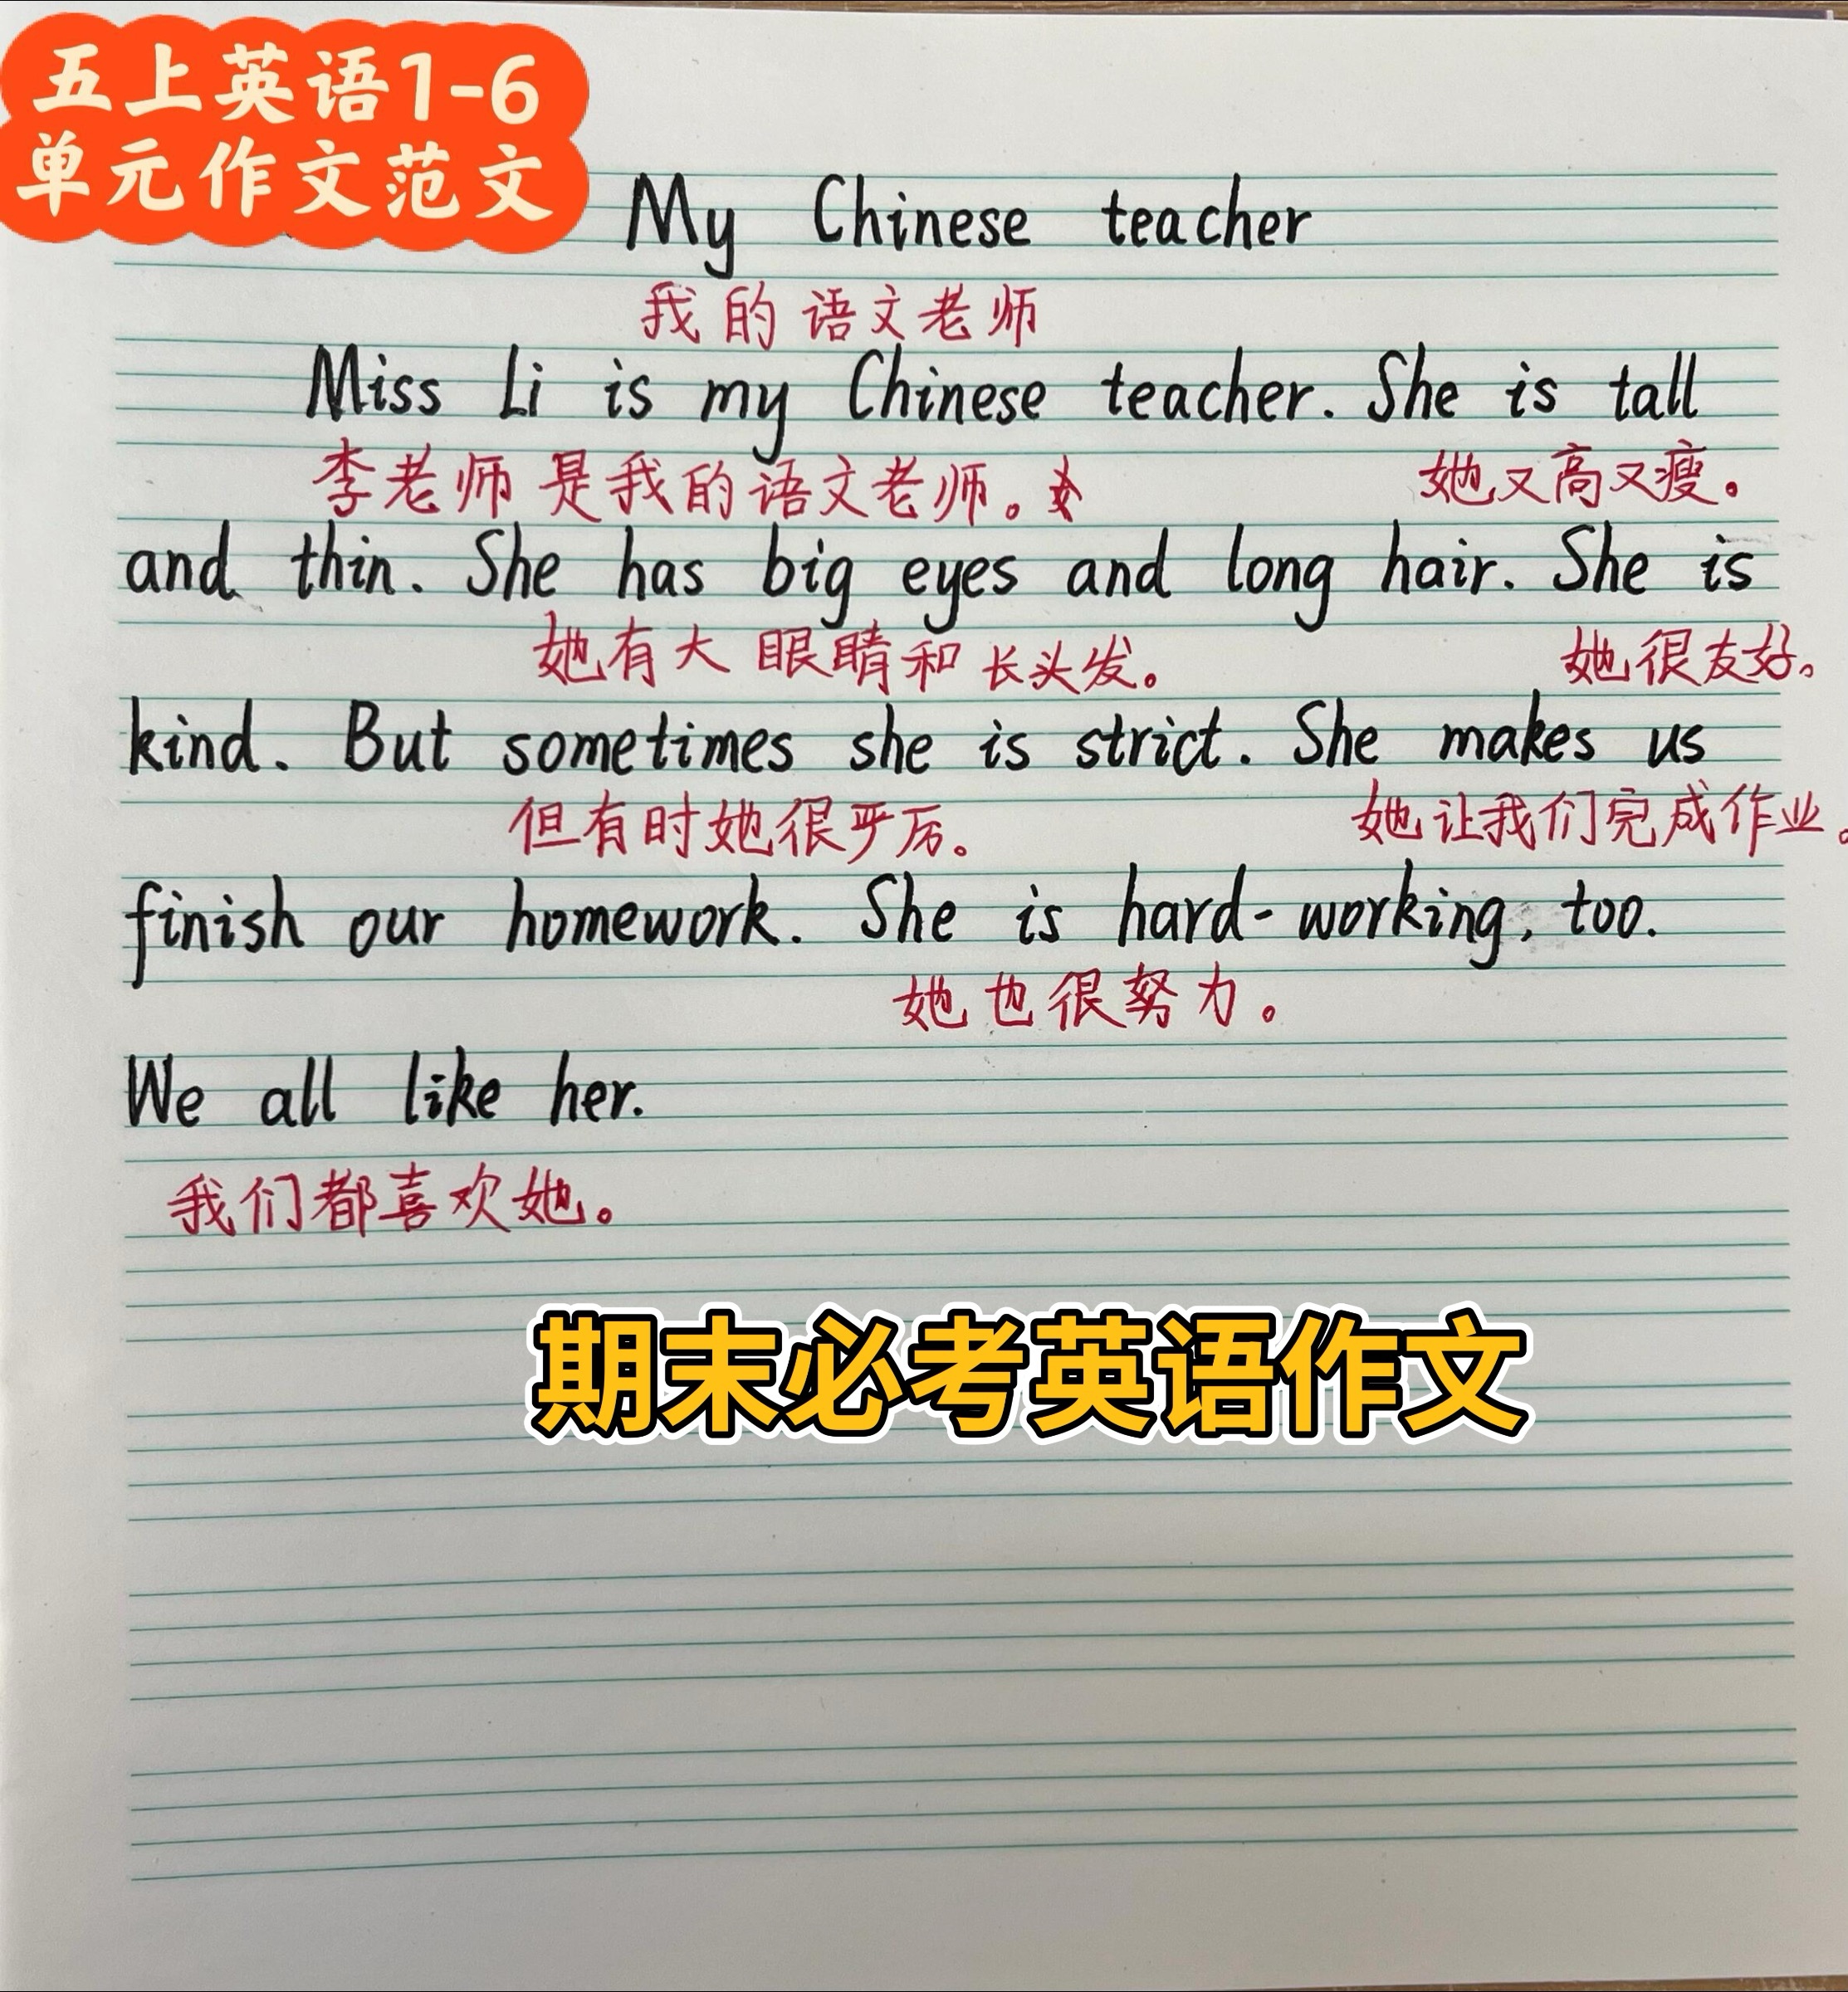 五上英语1-6
单元作文范文
My Chinese teacher
我的语文老师
Miss Li is my Chinese teacher. She is tall
李老师是我的语文老师。 她又高又瘦。
and thin. She has big eyes and long hair. She is
她有大眼睛和长头发。 她很友好。
kind. But sometimes she is strict. She makes us
但有时她很严厉。 她让我们完成作业。
finish our homework. She is hard-working, too.
她也很努力。
We all like her.
我们都喜欢她。
期末必考英语作文